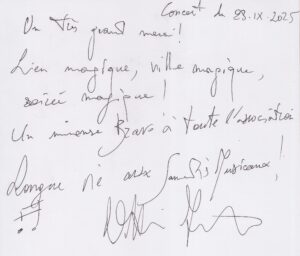 Concert du 28.IX.2025
Un très grand merci!
Lieu magique, ville magique,
soirée magique!
Un immense Bravo à toute l'association
Longue vie aux Samedis Musicaux!